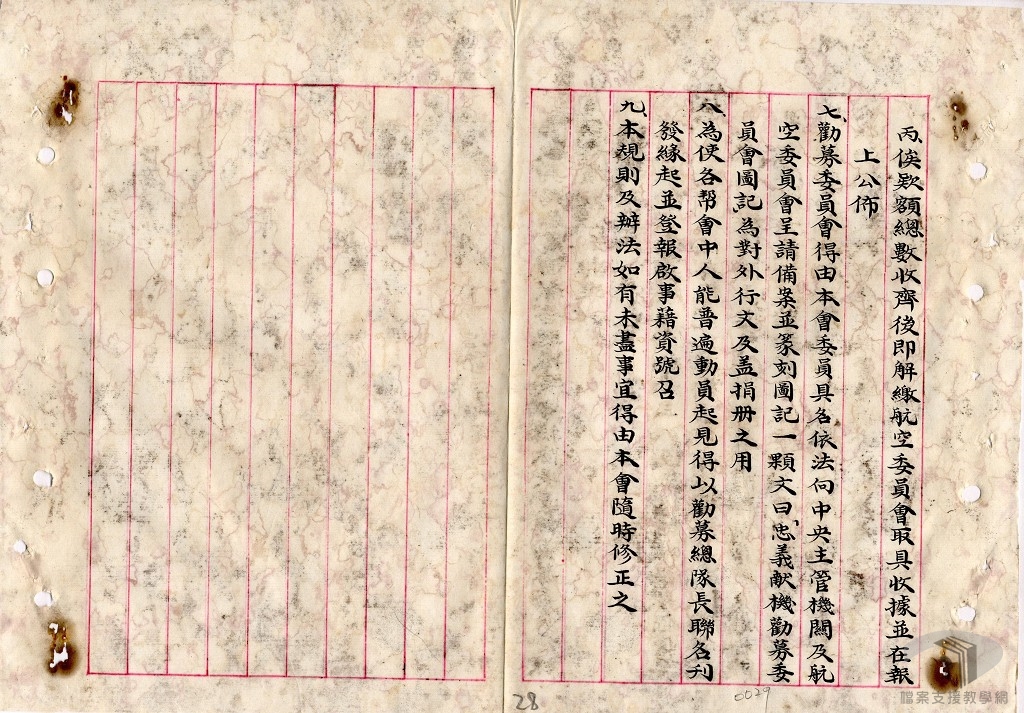 丙、俟欵額總數收齊後即解繳航空委員會取具收據並在報
上公佈
七、勸募委員會得由本會委員具名依法向中央主管機關及航
空委員會呈請備案並篆刻圖記一顆文曰、忠義献機勸募委
員會圖記為對外行文及盖捐册之用
八、為使各帮會中人能普遍動員起見得以勸募總隊長聯名刋
發緣起並登報啟事藉資號召
九、本規則及辦法如有未盡事宜得由本會隨時修正之
28
0029
檔案支援教學網